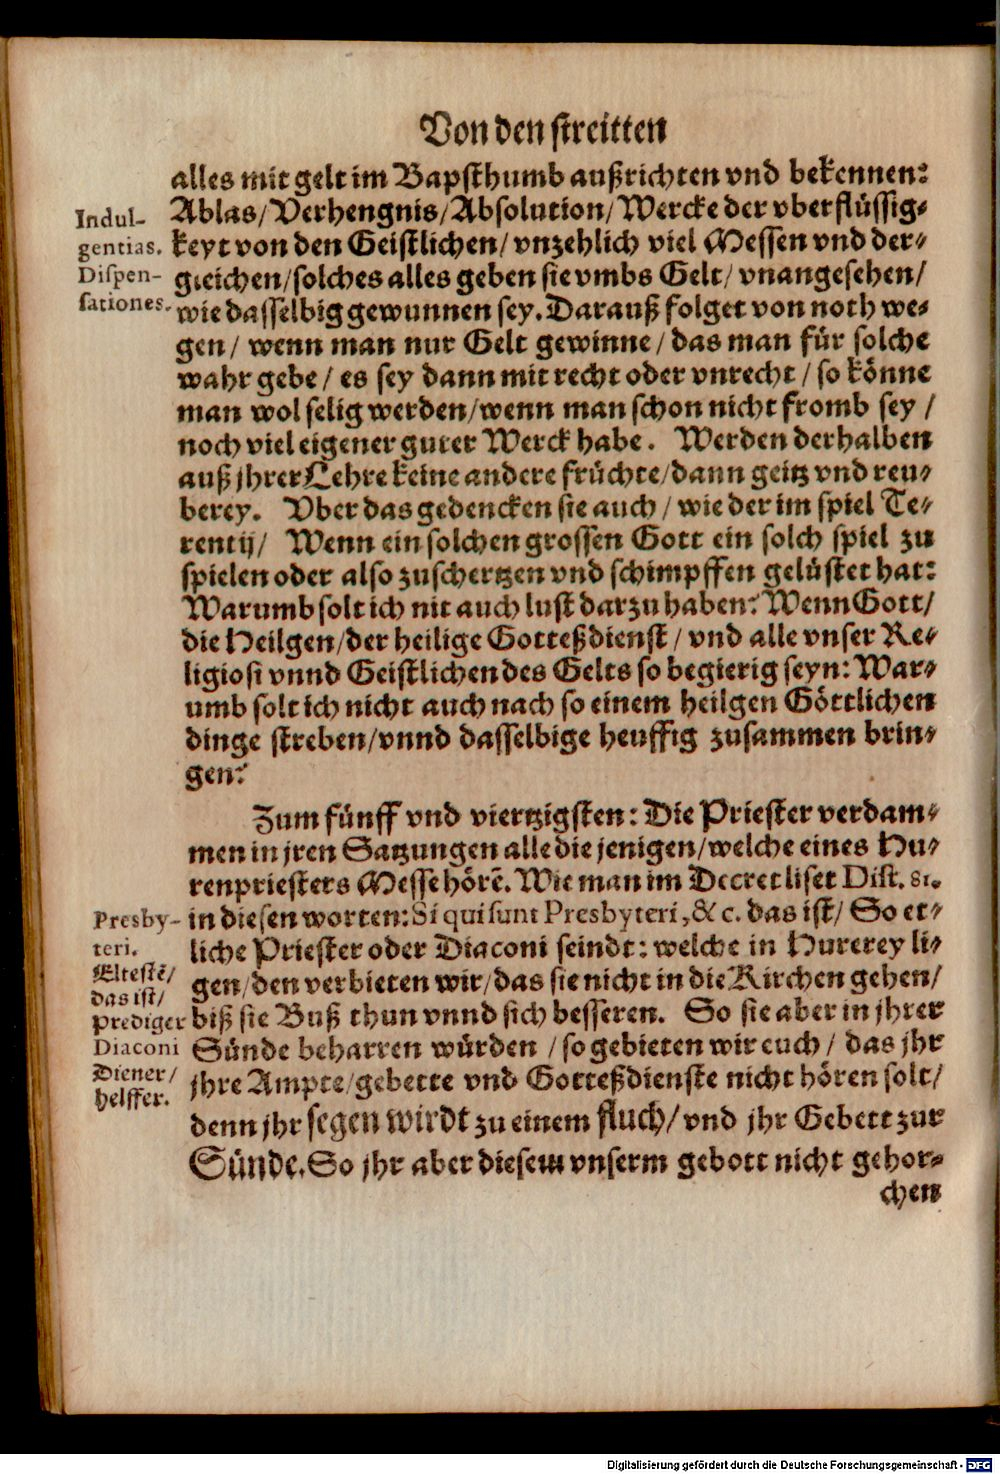 Von den streitten
alles mit gelt im Bapsthumb außrichten vnd bekennen:
Ablas/Verhengnis/Absolution/Wercke der vberflüssig⸗
keyt von den Geistlichen/vnzehlich viel Messen vnd der⸗
gleichen/solches alles geben sie vmbs Gelt/vnangesehen/
wie dasselbig gewunnen sey. Darauß folget von noth we⸗
gen/ wenn man nur Gelt gewinne/das man für solche
wahr gebe/ es sey dann mit recht oder vnrecht/so könne
man wol selig werden/wenn man schon nicht fromb sey/
noch viel eigener guter Werck habe. Werden derhalben
auß jhrer Lehre keine andere früchte/dann geitz vnd reu⸗
berey. Vber das gedencken sie auch/wie der im spiel Te⸗
rentij/ Wenn ein solchen grossen Gott ein solch spiel zu
spielen oder also zuschertzen vnd schimpffen gelüstet hat:
Warumb solt ich nit auch lust darzu haben? Wenn Gott/
die Heilgen/der heilige Gotteßdienst/ vnd alle vnser Re⸗
ligiosi vnnd Geistlichen des Gelts so begierig seyn: War⸗
umb solt ich nicht auch nach so einem heilgen Göttlichen
dinge streben/vnnd dasselbige heuffig zusammen brin⸗
gen?
Zum fünff vnd viertzigsten: Die Priester verdam⸗
men in jren Satzungen alle die jenigen/welche eines Hu⸗
renpriesters Messe hörē. Wie man im Decret liset Dist. 81.
in diesen worten: Si qui sunt Presbyteri, &c. das ist/ So et⸗
liche Priester oder Diaconi seindt: welche in Hurerey li⸗
gen/den verbieten wir/das sie nicht in die Kirchen gehen/
biß sie Buß thun vnnd sich besseren. So sie aber in jhrer
Sünde beharren würden/so gebieten wir euch/ das jhr
jhre Ampte/gebette vnd Gotteßdienste nicht hören solt/
denn jhr segen wirdt zu einem fluch/vnd jhr Gebett zur
Sünde. So jhr aber diesem vnserm gebott nicht gehor⸗
chen
Indul-
gentias.
Dispen-
sationes.
Presby-
teri.
Eltestē/
das ist/
Prediger
Diaconi
Diener/
helffer.
Digitalisierung gefördert durch die Deutsche Forschungsgemeinschaft - DFG